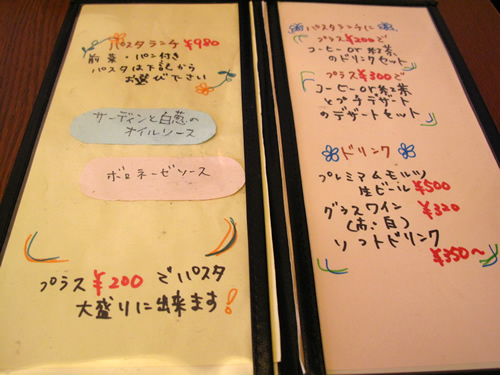 パスタランチ ¥980
前菜・パン付き
パスタは下記から
お選び下さい
サーディンと白葱の
オイルソース
ボロネーゼソース
プラス¥200でパスタ
大盛りに出来ます!
パスタランチに
プラス¥200で
コーヒー or 紅茶
のドリンクセット
プラス¥300で
コーヒー or 紅茶
とプチデザート
のデザートセット
ドリンク
プレミアムモルツ
生ビール ¥500
グラスワイン ¥320
(赤・白)
ソフトドリンク
¥350〜